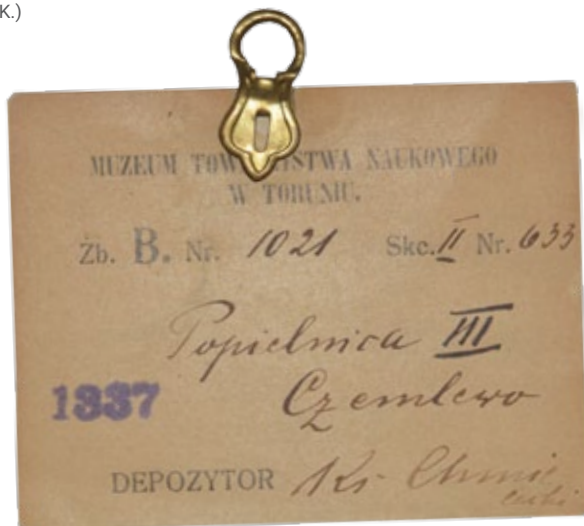 K.)
MUZEUM TOWARZYSTWA NAUKOWEGO
W TORUNIU.
Zb. B. Nr. 1021 Skc. II Nr. 633
Popielnica III
Czemlewo
1337
DEPOZYTOR Ks. Chmie
lecki